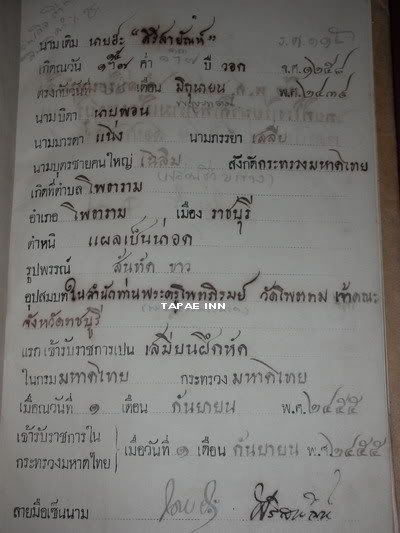 นามเดิม นายฮะ "สิริสายัณห์" ร.ศ.๑๑๕
เกิดณวัน ค่ำ ปี วอก จ.ศ.๑๒๕๘
ตรงกับวันที่ เดือน มิถุนายน พ.ศ.๒๔๓๙
นามบิดา นายพอน
นามมารดา แน่ง นามภรรยา เลลีย
นามบุตรชายคนใหญ่ เฉลิม สังกัดกระทรวงมหาดไทย
เกิดที่ตำบล โพธาราม
อำเภอ โพธาราม เมือง ราชบุรี
ตำหนิ แผลเป็นน่าอก
รูปพรรณ์ สันทัด ขาว
อุปสมบท ในสำนักท่านพระครูโพทภิรมย์ วัดไทรทม เจ้าคณะ
TAPAE INN
จังหวัดราชบุรี
แรกเข้ารับราชการเปน เสมียนฝึกหัด
ในกรม มหาดไทย กระทรวง มหาดไทย
เมื่อณวันที่ ๑ เดือน กันยายน พ.ศ.๒๔๕๕
เข้ารับราชการใน เมื่อวันที่ ๑ เดือน กันยายน พ.ศ.๒๔๕๕
กระทรวงมหาดไทย
ลายมือเซ็นนาม